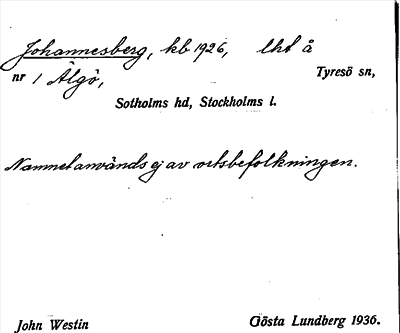 Johannesberg, kb 1926, lht å
nr 1 Älgö, Tyresö sn,
Sotholms hd, Stockholms l.
Namnet används ej av ortsbefolkningen.
John Westin Gösta Lundberg 1936.